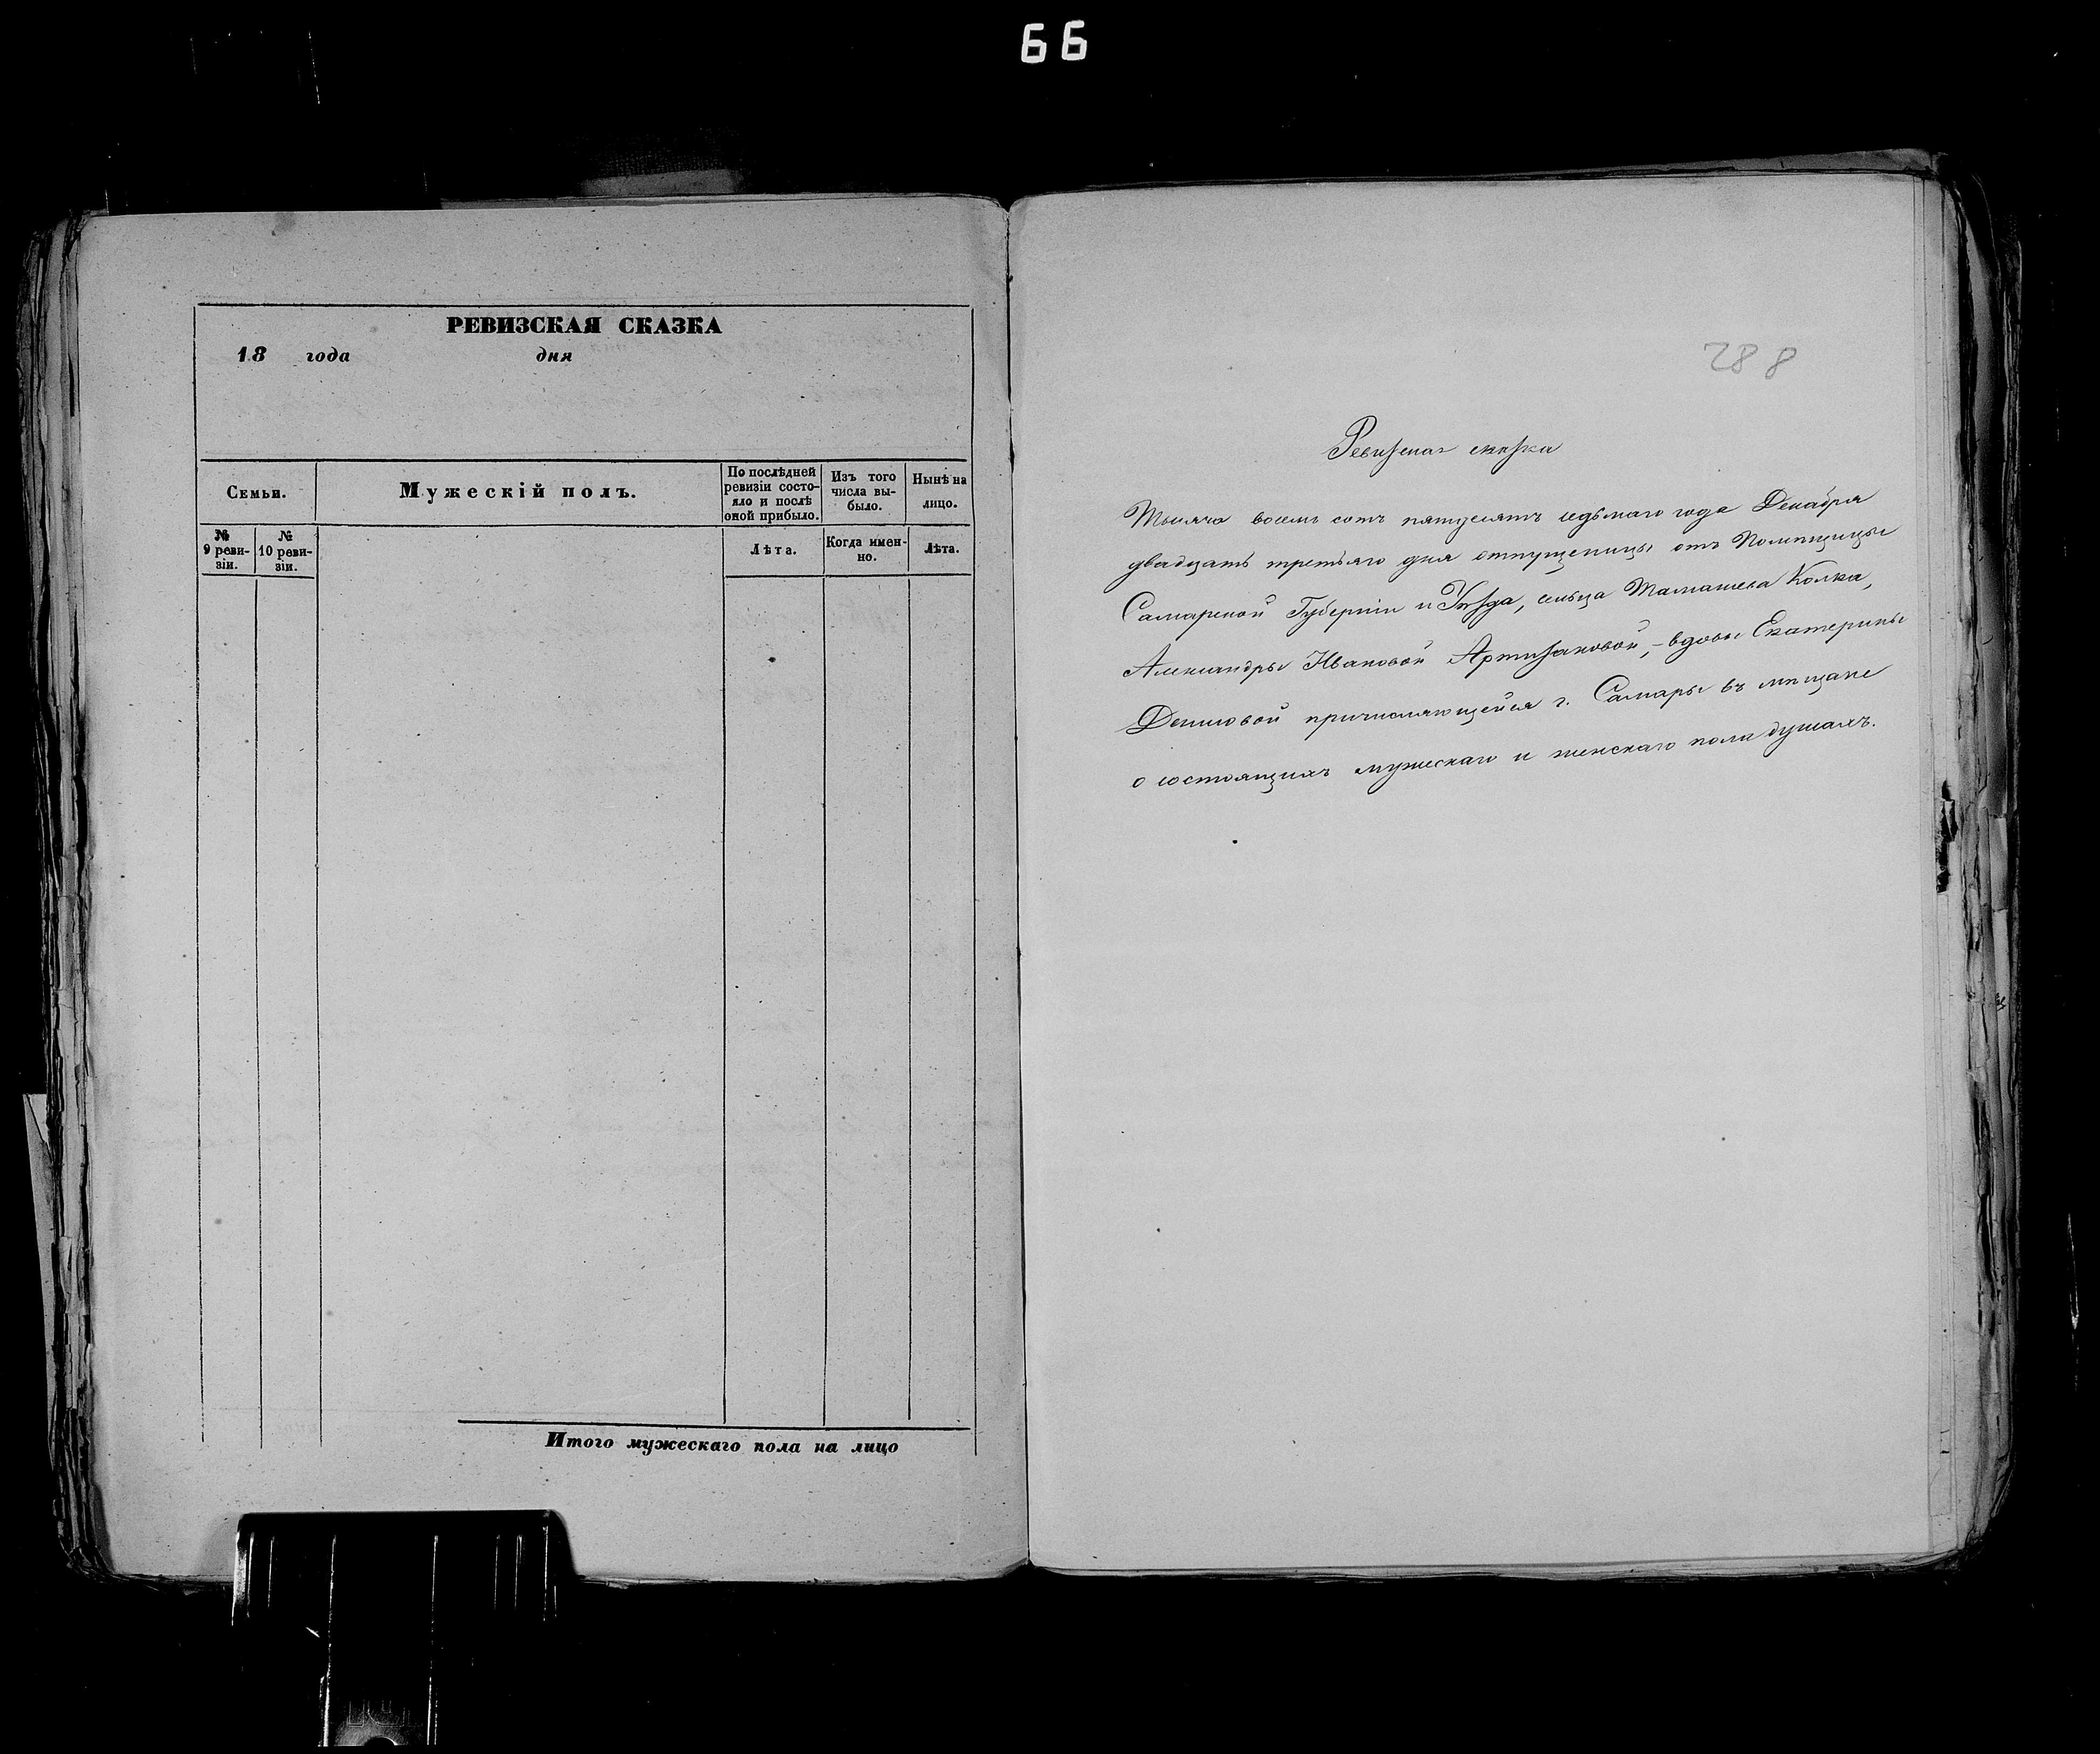 66
РЕВИЗСКАЯ СКАЗКА
18 года дня
Семьи.
Мужескій полъ.
По послѣдней ревизіи состо-
яло и послѣ оной прибыло.
Изъ того числа вы-
было.
Нынѣ на лицо.
№ 9 реви-
зіи.
№ 10 реви-
зіи.
Лѣта.
Когда имен-
но.
Лѣта.
Итого мужескаго пола на лицо
288
Ревизская сказка
Тысяча восемь сотъ пятдесятъ седьмаго года Декабря
двадцать третьяго дня отпущеницы отъ Помѣщицы
Самарской Губерніи и Уѣзда, сельца Тамашева Колка,
Александры Ивановой Артизановой, - вдовы Екатерины
причисляющейся г. Самары въ мѣщане
о состоящихъ мужескаго и женскаго пола душахъ.